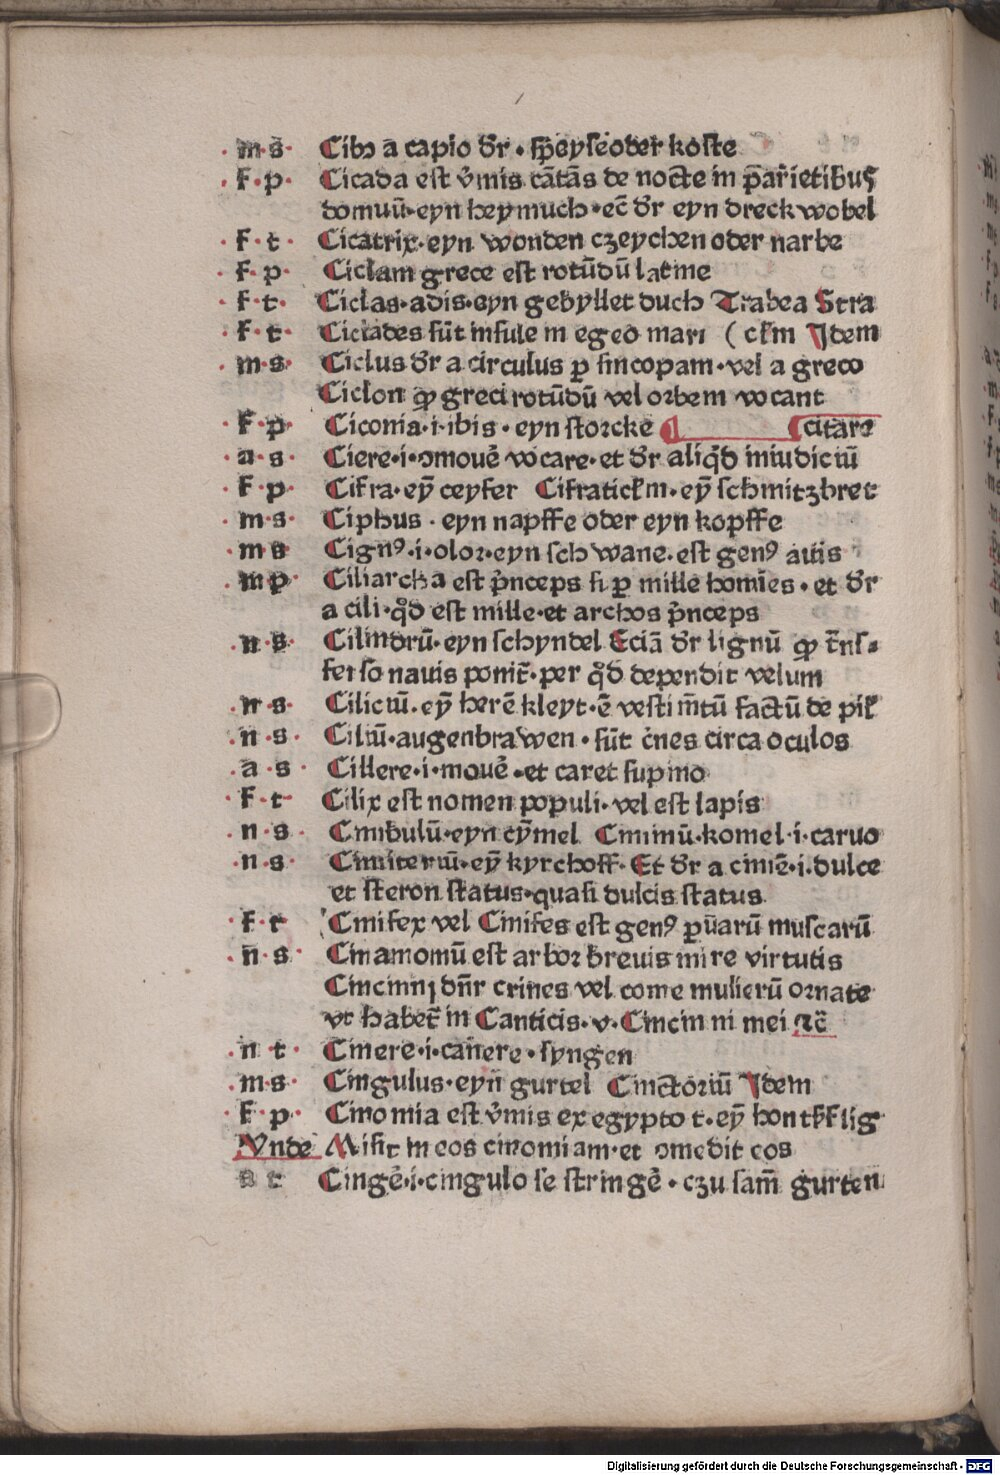 ·m·s· Cibꝰ a capio dr̄ · speyse oder koste
·f·p· Cicada est v̄mis cātās de nocte in p̄arietibus
domuū·eyn heymuch·ec̄ dr̄ eyn dreckwobel
·f·t· Cicatrix·eyn wonden czeychen oder narbe
·f·p· Ciclam grece est rotūdū latine
·f·t· Ciclas·adis·eyn gebyllet duch Trabea Stra
·f·t· Ciclades sūt insule in egeo mari ( ckm Idem
·m·s· Ciclus dr̄ a circulus ꝑ sincopam·vel a greco
Ciclon ꝙ greci rotūdū vel orbem vocant
·f·p· Ciconia·i·ibis·eyn storcke citare
·a·s· Ciere·i·ꝯmouē vocare·et dr̄ aliq̄d in iudiciū
·f·p· Cifra·eȳ ceyfer Cifratickm·eȳ schmitzbret
·m·s· Ciphus·eyn napffe oder eyn kopffe
·m s Cignꝰ·i·olor·eyn schwane·est genꝰ auis
·m p· Ciliarcha est p̄nceps suꝑ mille homīes·et dr̄
a cili·qd̄ est mille·et archos p̄nceps
·n·s· Cilindrū·eyn schyndel Eciā dr̄ lignū ꝙ t̄ns⸗
fer so nauis ponit̄·per qd̄ dependit velum
·n·s· Ciliciū·eȳ herē kleyt·ē vestim̄tū factū de pil̄
·n·s· Ciliū·augenbrawen·sūt c̄nes circa oculos
·a·s· Cillere·i·mouē·et caret supino
·f·t· Cilix est nomen populi·vel est lapis
·n·s· Cimbulū·eyn cȳmel Cimimū·komel·i·caruo
·n·s· Cimiteriū·eȳ kyrchoff·Et dr̄ a cimē·i·dulce
et steron status·quasi dulcis status
·f·t· Cinifex vel Cinifes est genꝰ ꝑuarū muscarū
·n·s· Cinamomū est arbor brevis mire virtutis
Cincinni dn̄r crines vel come mulierū ornate
vt habet̄ in Canticis·v·Cincinni mei ⁊c̄
·n t· Cinere·i·canere·syngen
·m·s· Cingulus·eyn gurtel Cinctoriū Idem
·f·p· Cinomia est v̄mis ex egypto t·eȳ hontsflig
Vnde Misit in eos cinomiam·et ꝯmedit eos
a t Cingē·i·cingulo se stringē·czu sam̄ gurten
Digitalisierung gefördert durch die Deutsche Forschungsgemeinschaft · DFG